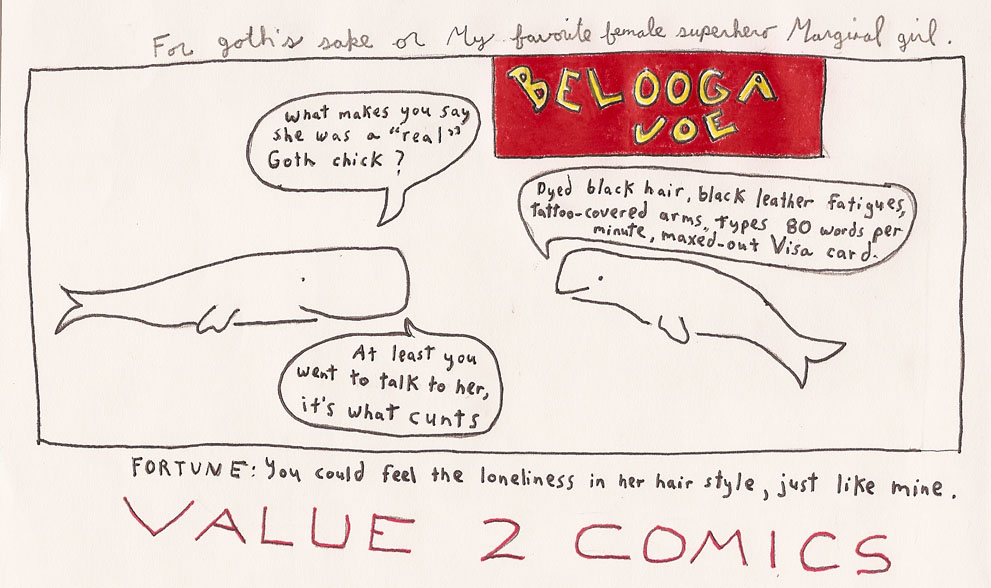 For goth's sake or My favorite female superhero Marginal girl.
BELOOGA
JOE
What makes you say
she was a "real"
Goth chick?
Dyed black hair, black leather fatigues,
tattoo-covered arms, types 80 words per
minute, maxed-out Visa card.
At least you
went to talk to her,
it's what cunts
FORTUNE: You could feel the loneliness in her hair style, just like mine.
VALUE 2 COMICS